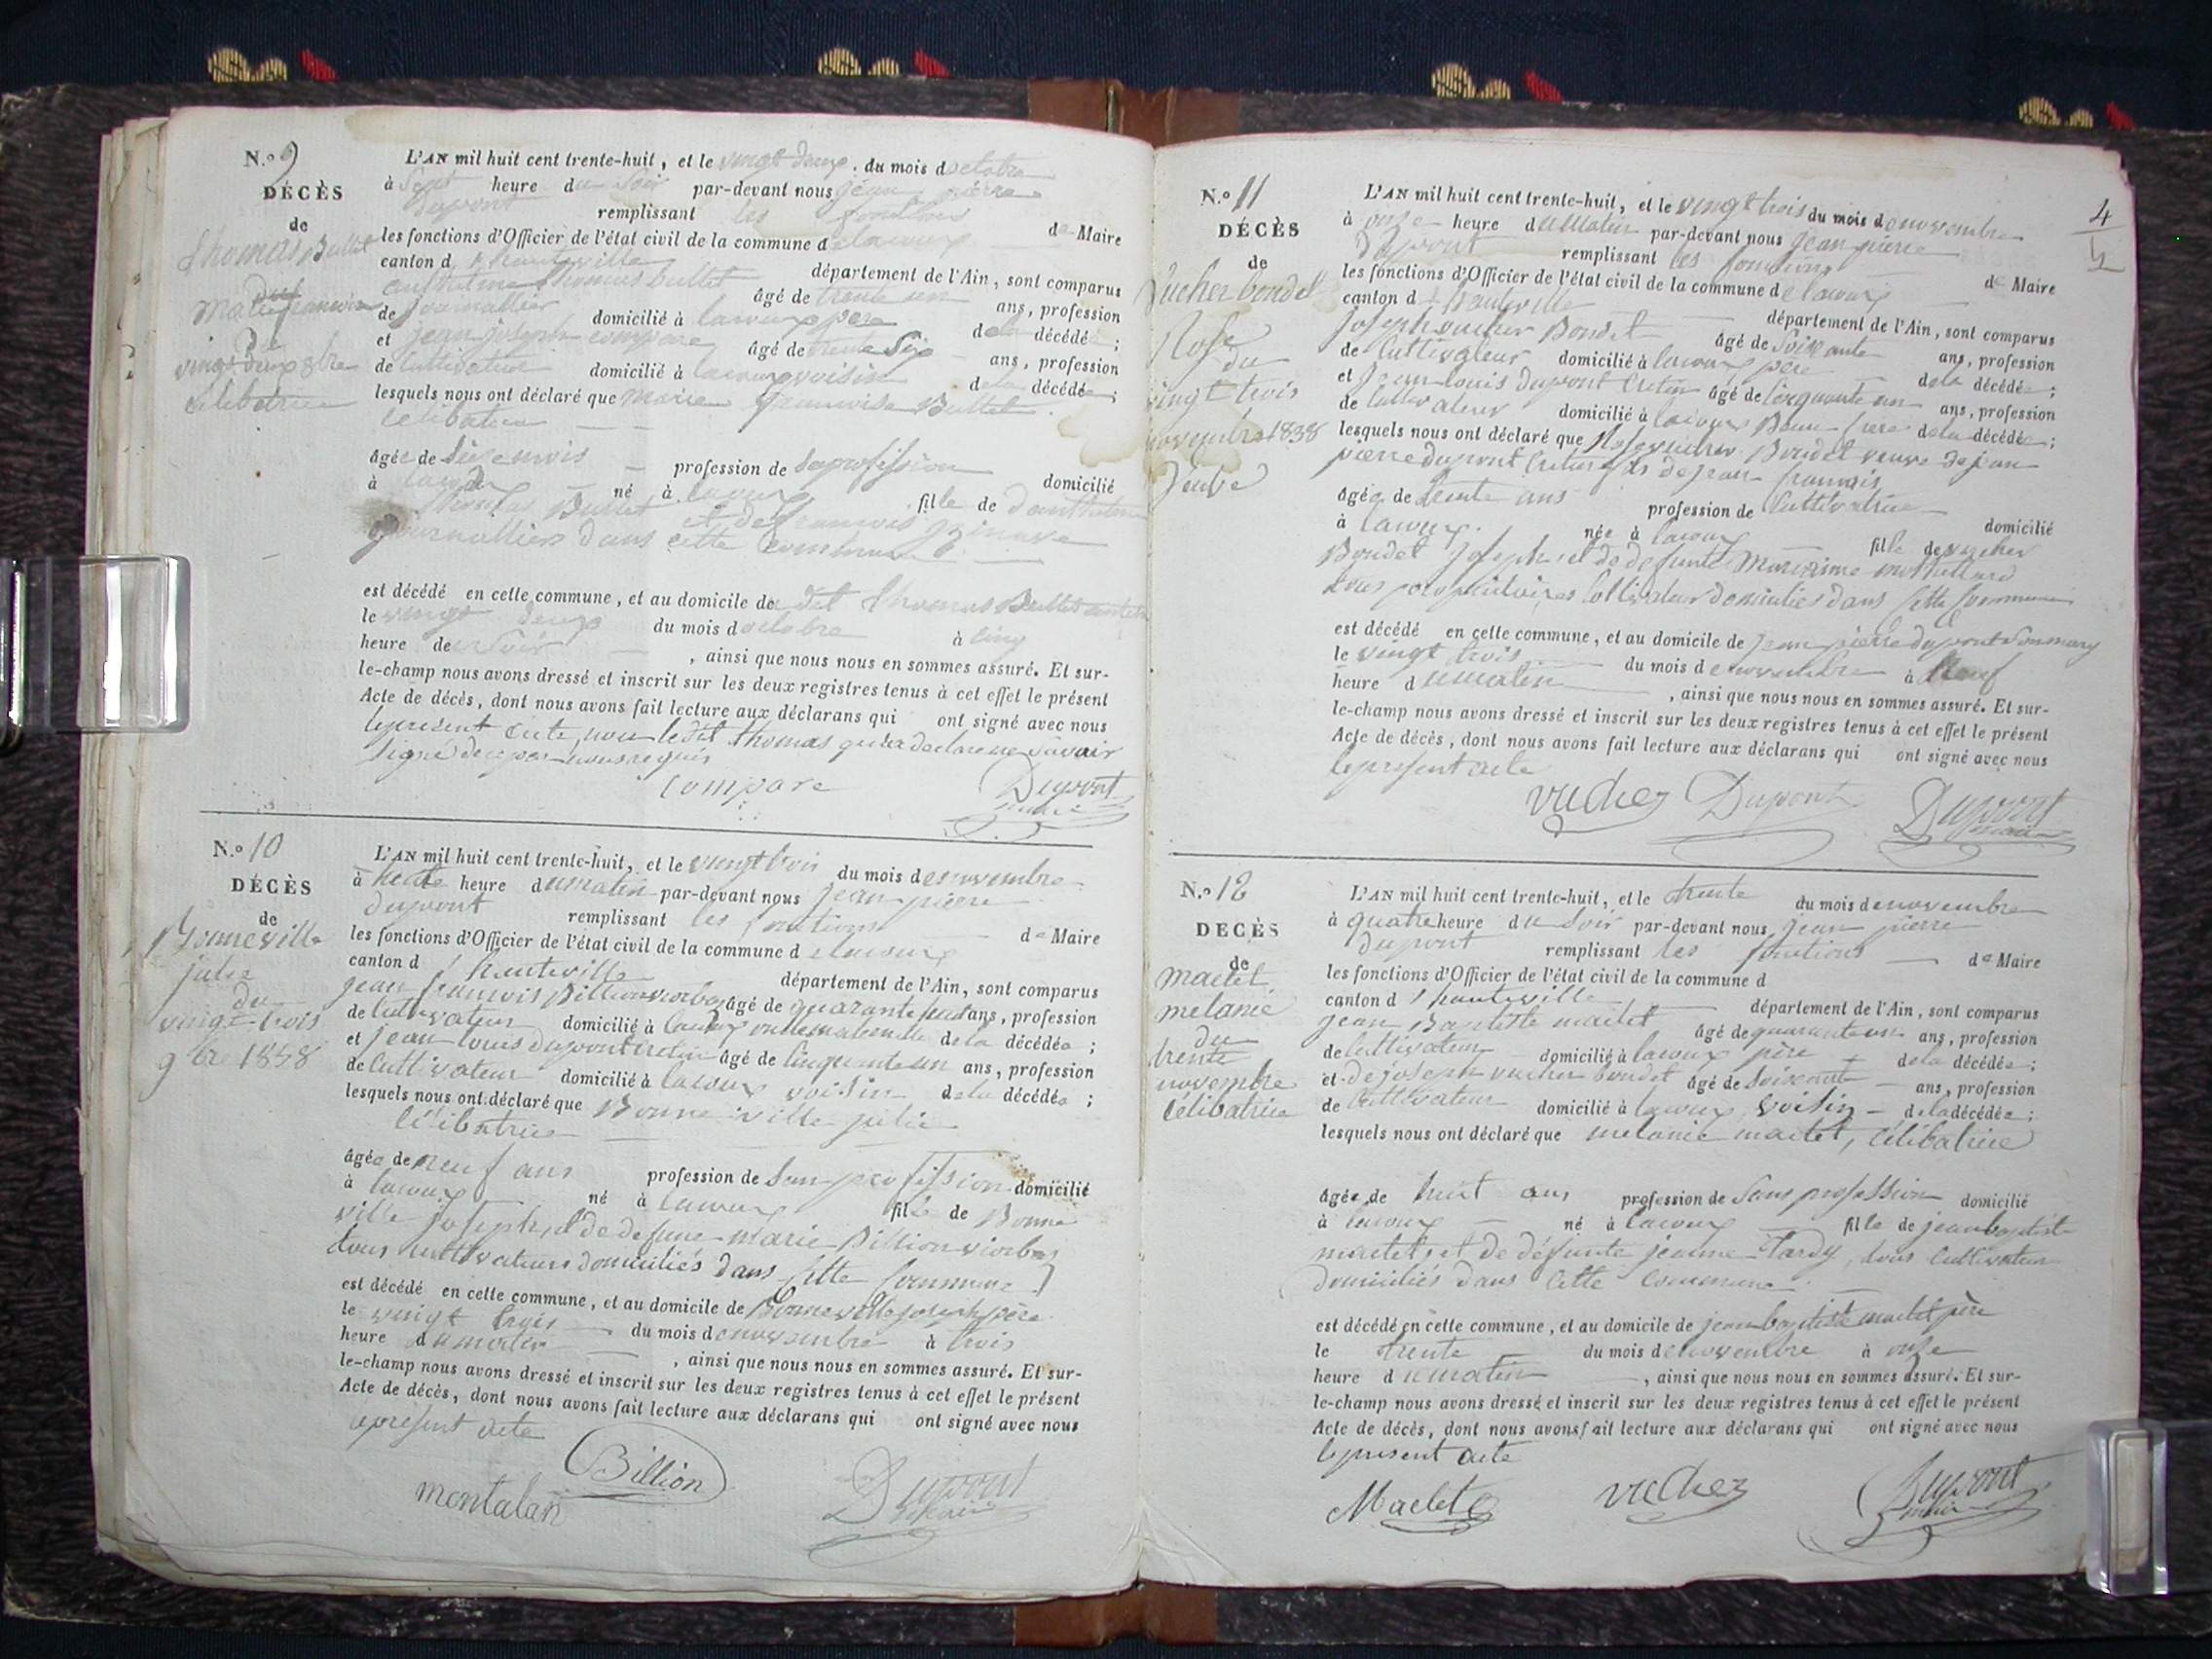 N.º 9
DÉCÈS
de
Thomas Bullet
Marie françoise
du
vingt deux 8bre
célibatrice
L'AN mil huit cent trente-huit, et le vingt deux du mois doctobre
à Sept heure du Soir par-devant nous jean pierre
dupont remplissant les fonctions de Maire
les fonctions d'Officier de l'état civil de la commune delacoux
canton d'hauteville département de l'Ain, sont comparus
anthelme Thomas bullet âgé de trente un ans, profession
de journallier domicilié à lacoux père dela décédée;
et jean joseph compare âgé de trente Six ans, profession
de Cultivateur domicilié à lacoux voisin dela décédée;
lesquels nous ont déclaré que marie françoise Bullet
célibatrice
âgée de Six mois profession de Saprofession domicilié
à lacoux né à lacoux fille de danthelme
thomas Bullet et de françois
journalliers dans cette Commune
est décédé en cette commune, et au domicile du dit thomas Bullet
le vingt deux du mois doctobre à cinq
heure du Soir, ainsi que nous nous en sommes assuré. Et sur-
le-champ nous avons dressé et inscrit sur les deux registres tenus à cet effet le présent
Acte de décès, dont nous avons fait lecture aux déclarans qui ont signé avec nous
le present acte, non ledit thomas qui a declare ne savoir
signé de ce par nous requis
compare Dupont
maire
N.º 10
DÉCÈS
de
Bonneville
julie
du
vingt-trois
9bre 1838
L'AN mil huit cent trente-huit, et le vingt trois du mois denovembre
à heure dumatin par-devant nous jean pierre
dupont remplissant les fonctions de Maire
les fonctions d'Officier de l'état civil de la commune delacoux
canton d'hauteville département de l'Ain, sont comparus
jean françois Billion âgé de quarante huit ans, profession
de cultivateur domicilié à lacoux oncle maternelle dela décédée;
et jean louis dupont cretin âgé de cinquante un ans, profession
de Cultivateur domicilié à lacoux voisin dela décédée;
lesquels nous ont déclaré que Bonne ville julie
célibatrice
âgée de neuf ans profession de San profession domicilié
à lacoux né à lacoux fille de Bonne
ville joseph, et de defune marie Billion
tous cultivateurs domiciliés dans cette Commune
est décédé en cette commune, et au domicile de Bonneville joseph père
le vingt trois du mois denovembre à trois
heure dumatin, ainsi que nous nous en sommes assuré. Et sur-
le-champ nous avons dressé et inscrit sur les deux registres tenus à cet effet le présent
Acte de décès, dont nous avons fait lecture aux déclarans qui ont signé avec nous
lepresent acte
Billion
montalan Dupont
maire
4
N.º 11
DÉCÈS
de
Vucher bondet
Rose
du
vingt trois
novembre 1838
Veuve
L'AN mil huit cent trente-huit, et le vingt trois du mois denovembre
à onze heure dumatin par-devant nous jean pierre
dupont remplissant les fonctions de Maire
les fonctions d'Officier de l'état civil de la commune delacoux
canton d'hauteville département de l'Ain, sont comparus
joseph vucher Bondet âgé de Soixante ans, profession
de Cultivateur domicilié à lacoux père dela décédée;
et jean louis dupont Cretin âgé de Cinquante un ans, profession
de Cultivateur domicilié à lacoux Beau frere dela décédée;
lesquels nous ont déclaré que Rose vucher Bondet veuve de jean
pierre dupont Cretin fils de jean françois
âgée de trente ans profession de Cultivatrice domicilié
à lacoux. née à lacoux fille de vucher
Bondet joseph, et de defunte
tous propriétaires Cultivateur domiciliés dans cette Commune
est décédé en cette commune, et au domicile de jean pierre dupont
le vingt trois du mois denovembre à Neuf
heure dumatin, ainsi que nous nous en sommes assuré. Et sur-
le-champ nous avons dressé et inscrit sur les deux registres tenus à cet effet le présent
Acte de décès, dont nous avons fait lecture aux déclarans qui ont signé avec nous
lepresent acte
Vucher Dupont Dupont
maire
N.º 12
DECÈS
de
maclet
melanie
du
trente
novembre
Célibatrice
L'AN mil huit cent trente-huit, et le trente du mois denovembre
à quatre heure du Soir par-devant nous jean pierre
dupont remplissant les fonctions de Maire
les fonctions d'Officier de l'état civil de la commune d
canton d'hauteville, département de l'Ain, sont comparus
jean Baptiste maclet âgé de quarante un ans, profession
de Cultivateur domicilié à lacoux père dela décédée;
et de joseph vucher bondet âgé de Soixante ans, profession
de Cultivateur domicilié à lacoux, voisin dela décédée;
lesquels nous ont déclaré que melanie maclet, célibatrice
âgée de huit ans profession de Sans profession domicilié
à lacoux né à lacoux fille de jeanbaptiste
maclet, et de défunte jeanne Tardy, tous Cultivateur
domiciliés dans cette commune
est décédé en cette commune, et au domicile de jean baptiste maclet père
le trente du mois denovembre à onze
heure dumatin, ainsi que nous nous en sommes assuré. Et sur-
le-champ nous avons dressé et inscrit sur les deux registres tenus à cet effet le présent
Acte de décès, dont nous avons fait lecture aux déclarans qui ont signé avec nous
lepresent acte
Maclet Vucher Dupont
maire